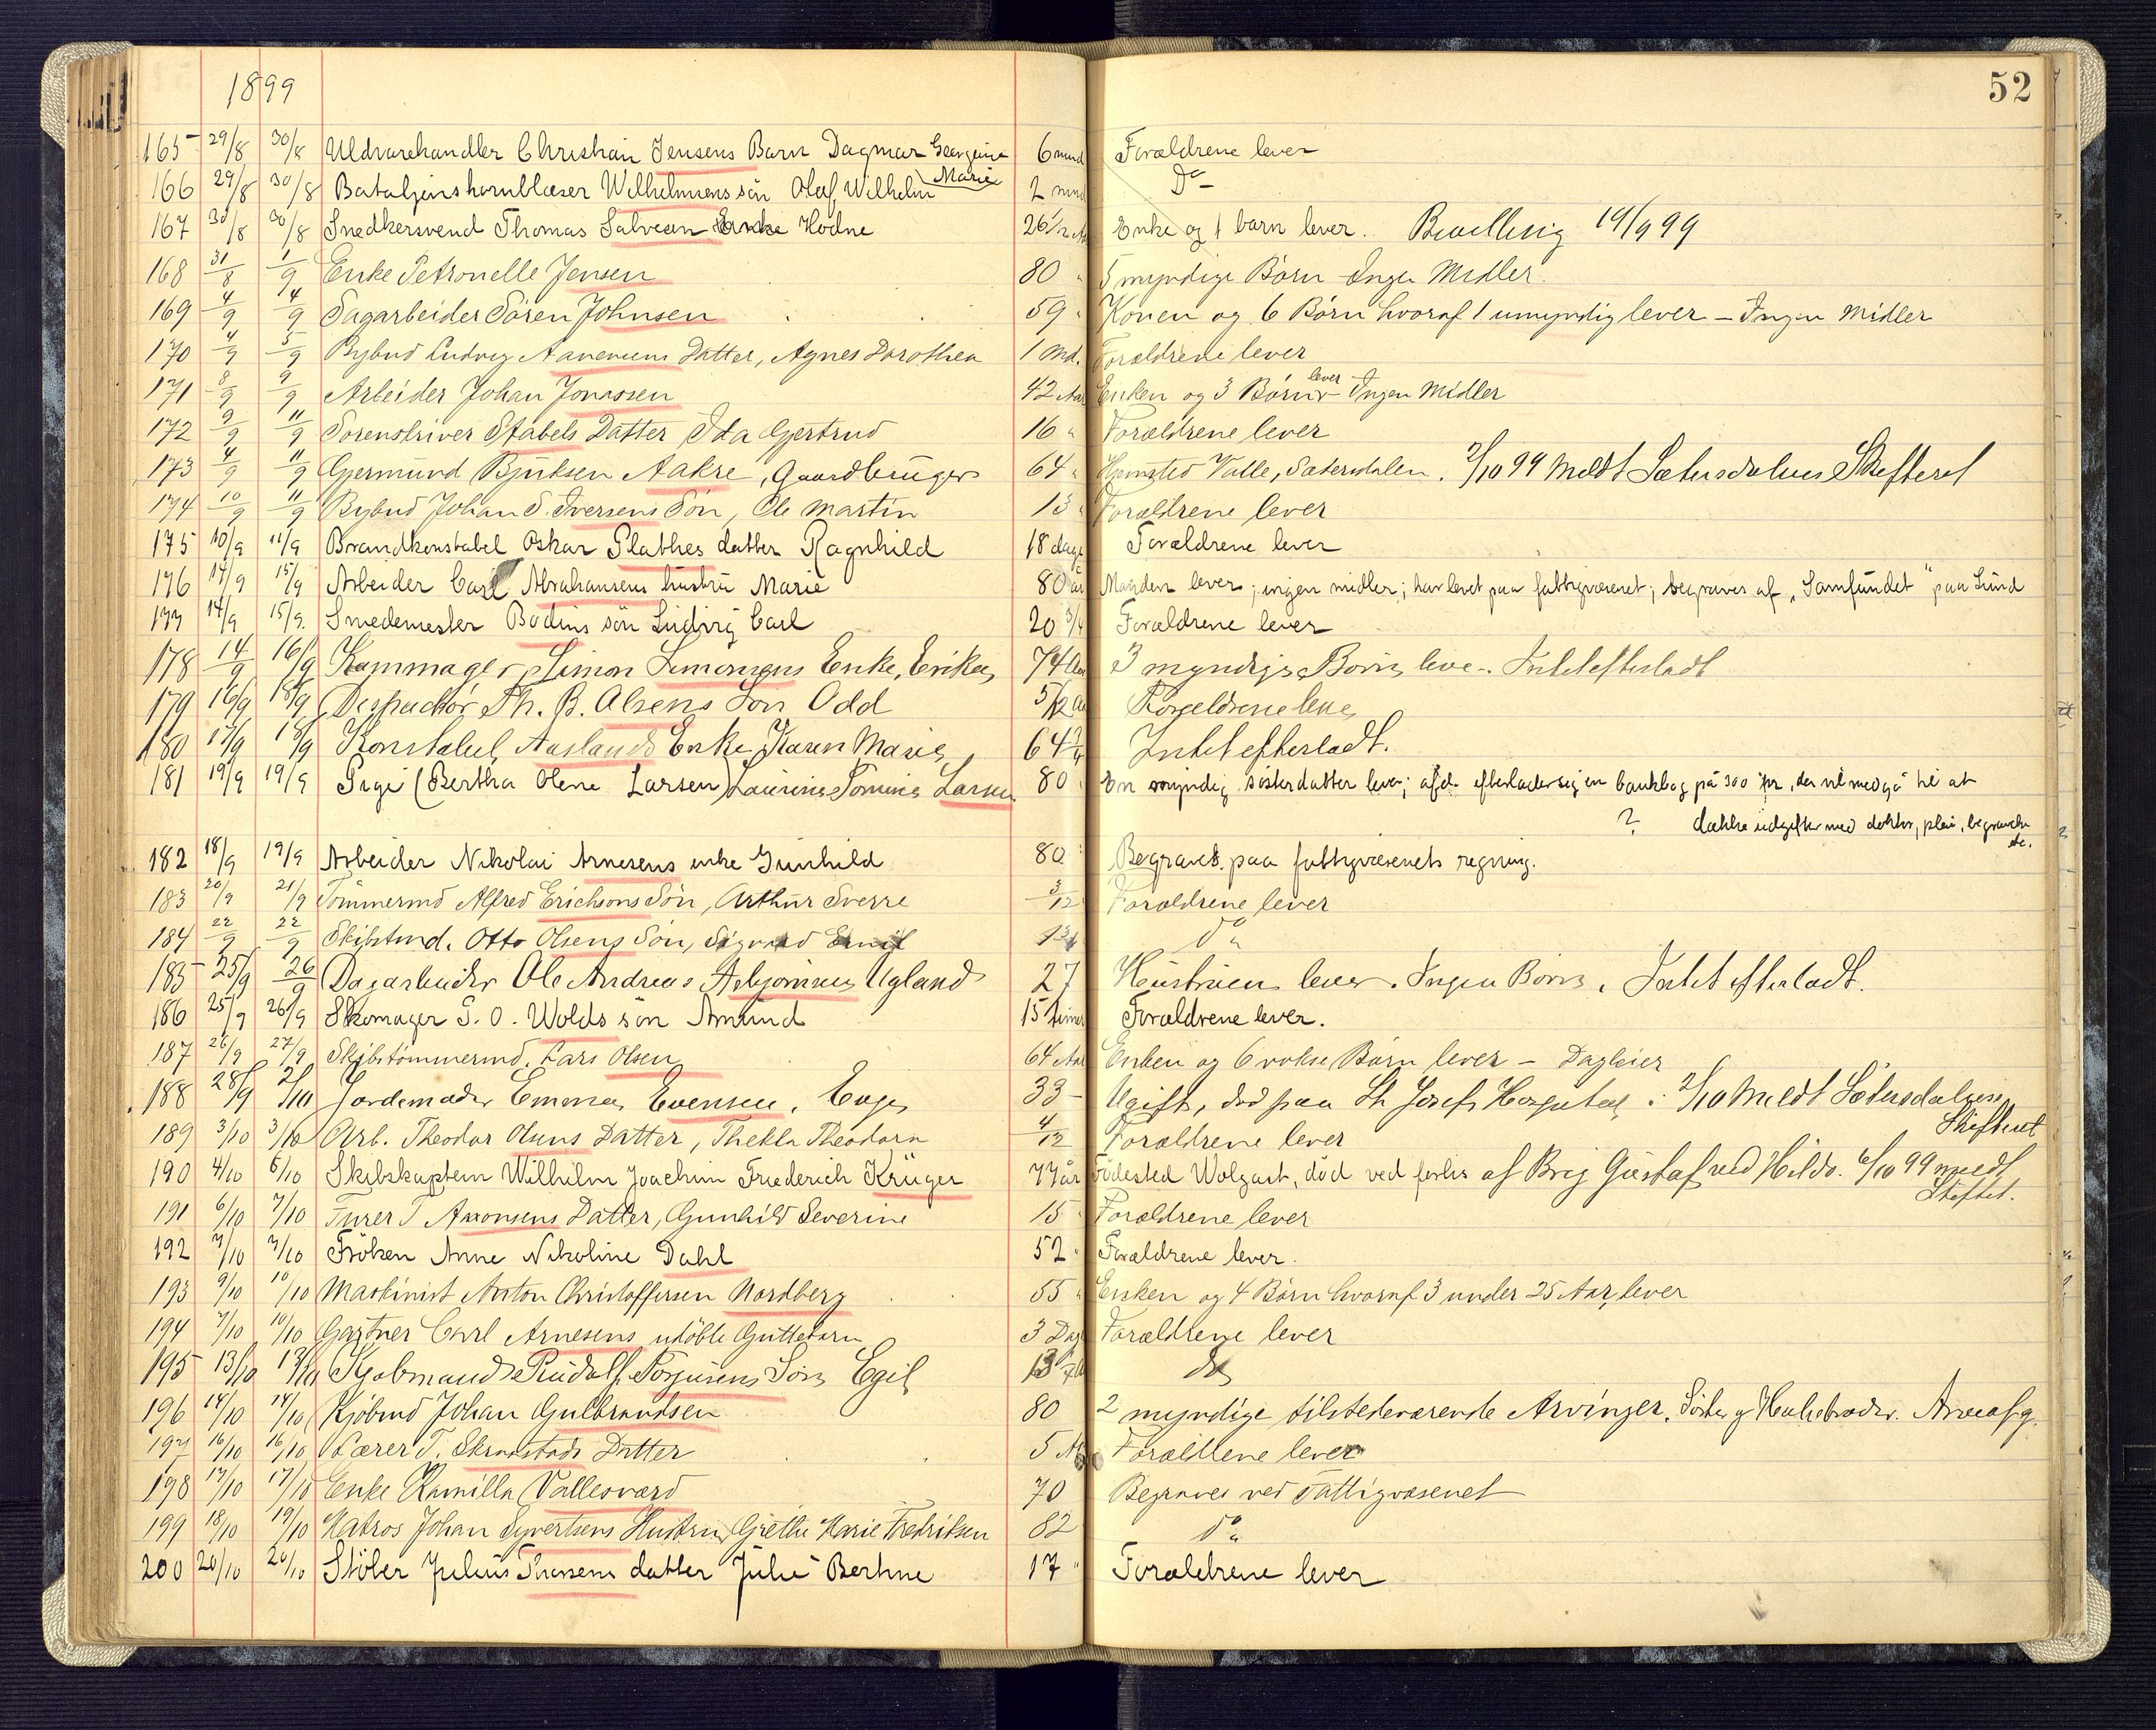 1899
52
165 29/8 30/8 Uldvarehandler Christian Jensens Barn Dagmar Georgine Marie 6 mnd Forældrene lever
166 29/8 30/8 Bataljonshornblæser Wilhelmsens sön Olaf Wilhelm 2 mnd Do
167 30/8 30/8 Snedkersvend Thomas Salvesen Hodne 26 1/2 Enke og 1 barn lever. Bevilling 19/9 99
168 31/8 1/9 Enke Petronelle Jensen 80 " 5 myndige Börn Ingen Midler.
169 4/9 4/9 Sagarbeider Sören Johnsen 59 " Konen og 6 Börn hvoraf 1 umyndig lever – Ingen Midler
170 4/9 5/9 Bybud Ludvig Aanensens Datter, Agnes Dorothea 1 Md. Forældrene lever
171 8/9 9/9 Arbeider Johan Jonassen 42 Aar Enken og 3 Börn lever – Ingen Midler
172 9/9 11/9 Sorenskriver Stabels Datter Ida Gjertrud 16 " Forældrene lever
173 4/9 11/9 Gjermund Aakre, Gaardbruger 64 " Hjemsted Valle, Sætersdalen. 2/10 99 Meldt Sætersdalens Skifteret
174 10/9 11/9 Bybud Johan S. Iversens Sön, Ole Martin 13 " Forældrene lever
175 10/9 11/9 Brandkonstabel Oskar Plathes datter Ragnhild 18 dage Forældrene lever
176 14/9 15/9 Arbeider Carl Abrahamsens hustru Marie 80 år Manden lever; ingen midler; har levet paa fattigvæsenet; begraves af "Samfundet" paa Lund
177 14/9 15/9. Smedemester Bodins sön Ludvig Carl 20 3/4 Forældrene lever
178 14/9 16/9 Kammager Simon Simonsens Enke, Erika 74 Aar 3 myndige Börn leve. Intet efterladt
179 16/9 18/9 Dispachör Th. B. Olsens Sön Odd 5/12 Aar Forældrene leve
180 17/9 18/9 Konstabel Aaslands Enke Karen Marie 64 Intet efterladt.
181 19/9 19/9 Pige (Bertha Olene Larsen) Laurine Tomine Larsen 80 " En myndig sösterdatter lever; afd. efterlader sig en bankbog på 300 kr, der vil medgå til at
? dække udgifter med doktor, pleie, begravelse etc.
182 18/9 19/9 Arbeider Nikolai Arnesens enke Gunhild 80 Begraves paa fattigvæsenets regning.
183 20/9 21/9 Tömmermd Alfred Erichsens Sön, Arthur Sverre 3/12 Forældrene lever
184 22/9 22/9 Skibstmd. Otto Olsens Sön, Sigvard Do
185 25/9 26/9 Dagarbeider Ole Andreas Asbjörnsen Ugland 27 Hustruen lever. Ingen Börn. Intet efterladt.
186 25/9 26/9 Skomager S. O. Wolds sön Amund 15 timer Forældrene lever.
187 26/9 27/9 Skibstömmermd. Lars Olsen 64 Aar Enken og 6 vokse Börn lever – Dagleier
188 28/9 2/10 Jordemoder Emma Evensen, Evje 33 – Ugift, död paa St. Josefs Hospital. 2/10 Meldt Sætersdalens Skifteret
189 3/10 3/10 Arb. Theodor Olsens Datter, Thekla Theodora 4/12 Forældrene lever
190 4/10 6/10 Skibskaptein Wilhelm Joachim Friederich Krüger 77 år Födested Wolgast, död ved forlis af Brig Gustaf ved Hildø. 6/10 99 meldt Skiftet.
191 6/10 7/10 Furer T Amonsens Datter, Gunhild Severine 15 " Forældrene lever
192 7/10 7/10 Fröken Anne Nikoline Dahl 52 " Forældrene lever.
193 9/10 10/10 Maskinist Anton Christoffersen Nordberg 55 " Enken og 4 Börn hvoraf 3 under 25 Aar, lever
194 7/10 10/10 Gartner Carl Arnesens udöbte Guttebarn 3 Dage Forældrene lever
195 13/10 13/10 Kjøbmand Rudolf Torjusens Sön Egil Do
196 14/10 14/10 Kjöbmd Johan Gulbrandsen 80 2 myndige tilstedeværende Arvinger. Söster og Halvbroder.
197 16/10 16/10 Lærer T. Skraastads Datter 5 Forældrene lever
198 17/10 17/10 Enke Kamilla Vallesværd 70 Begraves ved Fattigvæsenet
199 18/10 19/10 Matros Johan Syvertsens Hustru Grethe Marie Fredriksen 82 Do
200 20/10 20/10 Stöber Julius datter Julie Berthine 17 " Forældrene lever